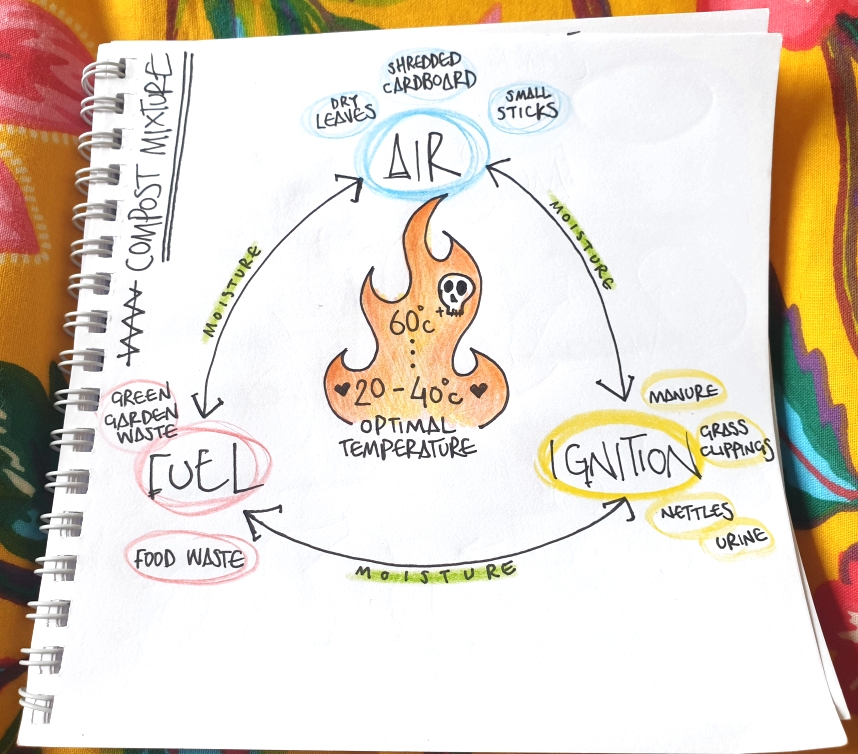 COMPOST MIXTURE
SHREDDED
CARDBOARD
DRY
LEAVES
SMALL
STICKS
AIR
MOISTURE
MOISTURE
60°C+
20-40°C
OPTIMAL
TEMPERATURE
GREEN
GARDEN
WASTE
FUEL
FOOD WASTE
MANURE
GRASS
CLIPPINGS
IGNITION
NETTLES
URINE
MOISTURE